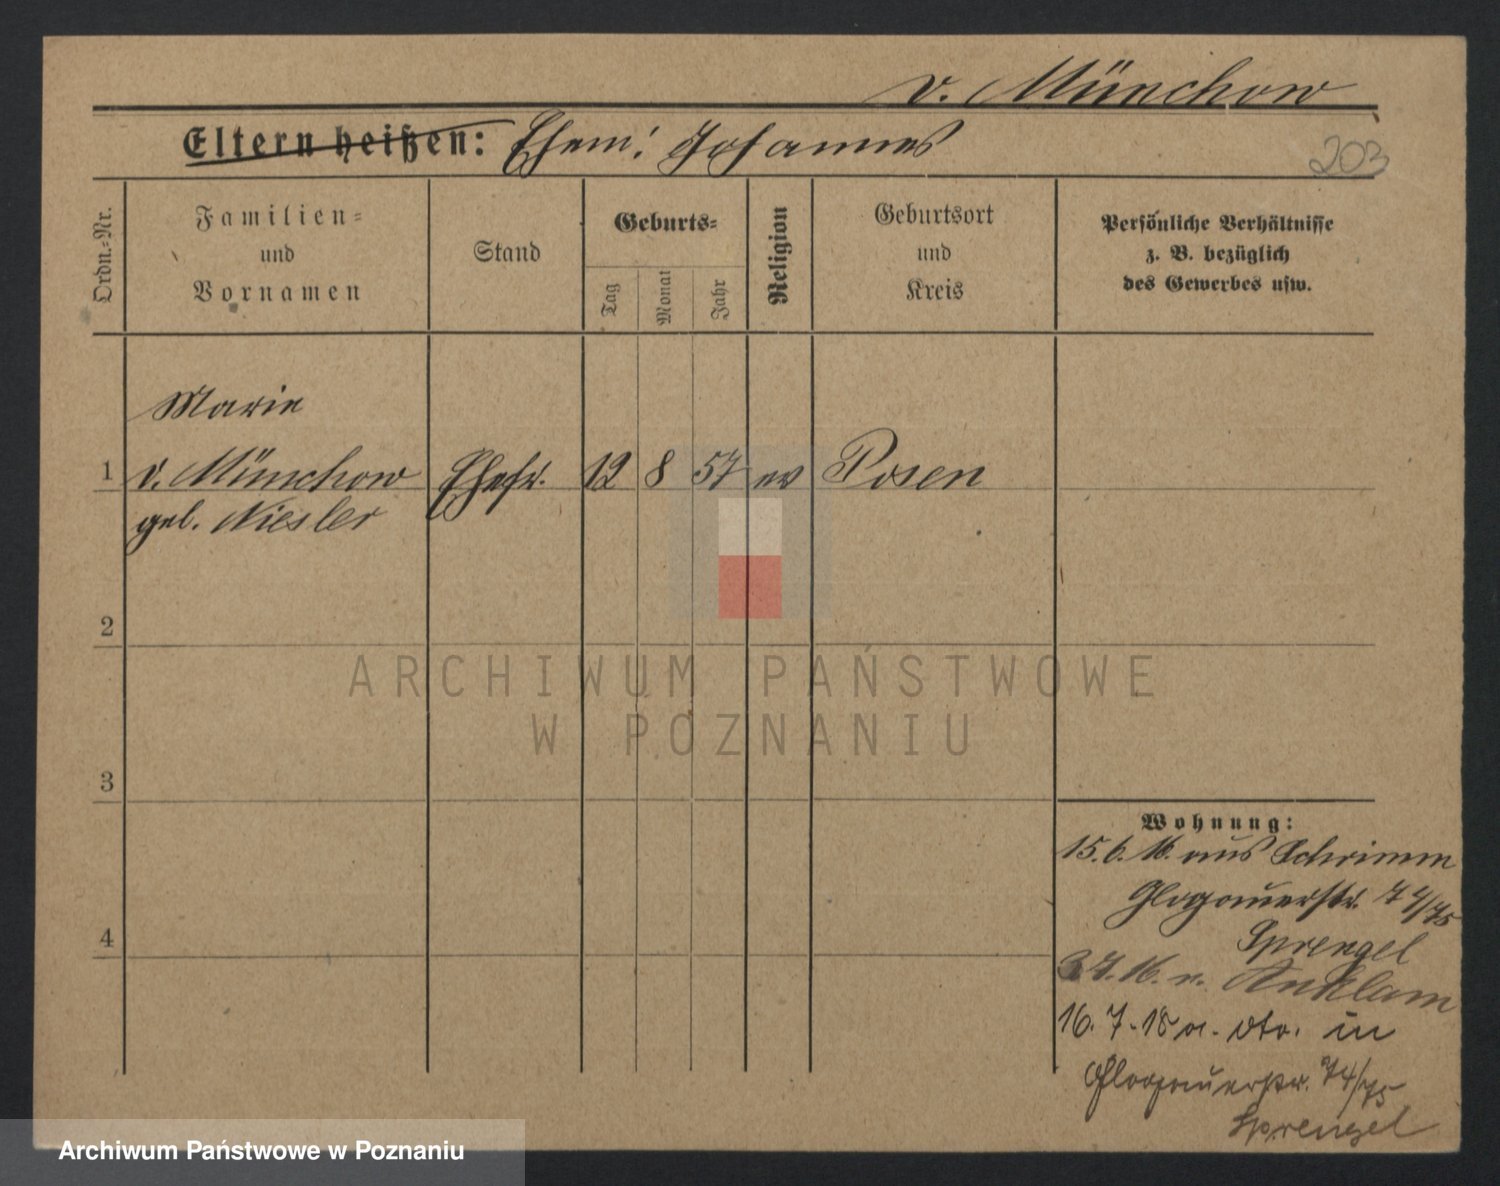 v. Münchow
Eltern heißen: Ehem: Johannes
203
Ordn.-Nr.
Familien-
und
Vornamen
Stand
Geburts-
Tag
Monat
Jahr
Religion
Geburtsort
und
Kreis
Persönliche Verhältnisse
z. B. bezüglich
des Gewerbes usw.
Marie
1 v. Münchow Ehefr. 12 8 57 ev Posen
geb. Niesler
2
3
4
Wohnung:
15.6.16. aus Schrimm
Glogauerstr. 74/75
Sprengel
3.7.16. n. Anklam
16.7.18 a. dto. in
Glogauerstr. 74/75
Sprengel
ARCHIWUM PAŃSTWOWE
W POZNANIU
Archiwum Państwowe w Poznaniu